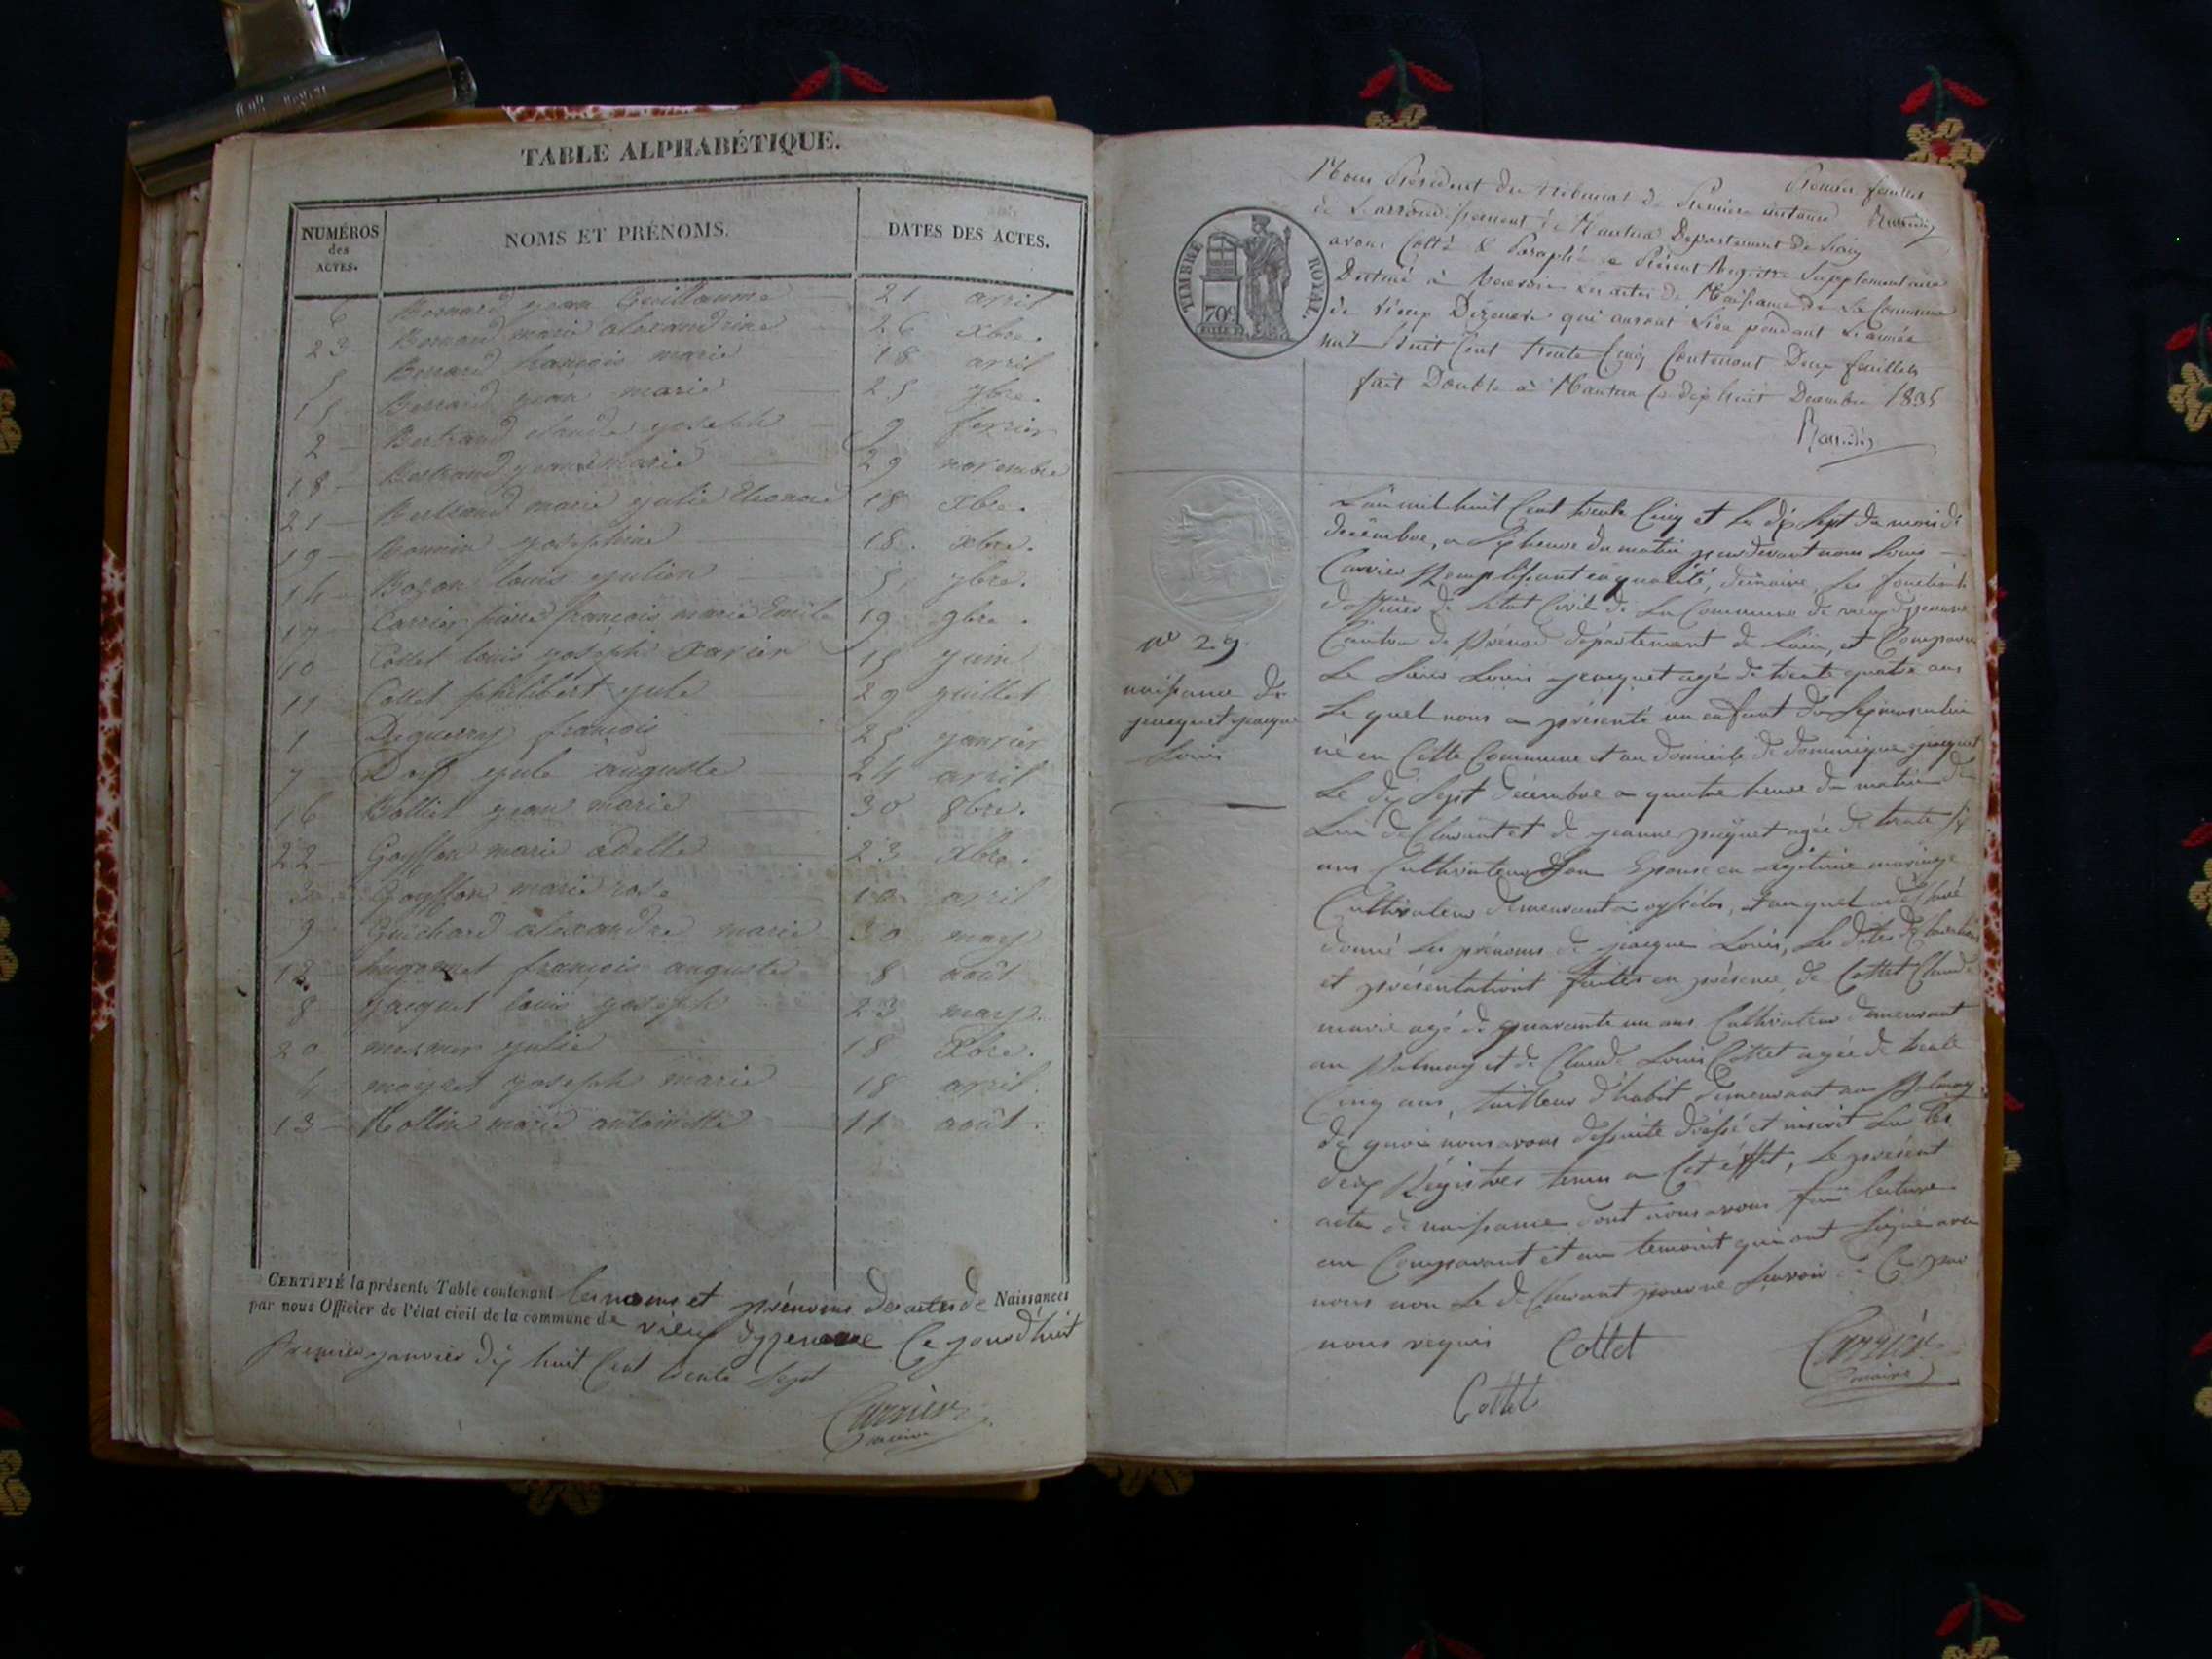 TABLE ALPHABÉTIQUE.
NUMÉROS des ACTES.
NOMS ET PRÉNOMS.
DATES DES ACTES.
6 Bernard jean Guillaume 21 avril
23 Bernard marie alexandrine 26 Xbre.
5 Berrard françois marie 18 avril
15 Berrard jean marie 25 7bre.
2 Bertrand claude yoseph 9 fevrier
18 Bertrand jean marie 29 novembre
21 Bertrand marie julie Eleonore 18 Xbre.
19 yosephine 18. Xbre.
14 Bozon louis julien 5, 7bre.
17 Carrier pierre françois marie Emile 19 9bre.
10 Collet louis yoseph Xavier 15 juin
11 Collet philibert jule 29 juillet
1 Deguerry françois 25 janvier
7 jule auguste 24 avril
16 Golliet jean marie 30 8bre.
22 Goyffon marie adelle 23 Xbre.
3 Goyffon marie rose 10 avril
9 Guichard alexandre marie 30 may
12 hugonnet françois auguste 8 août
8 Jacquet louis yoseph 23 may
20 mermer julie 18 Xbre.
4 moyret yoseph marie 18 avril.
13 Rollin marie antoinette 11 août.
CERTIFIÉ la présente Table contenant les noms et prénoms des actes de Naissances
par nous Officier de l'état civil de la commune de vieux dyzenave Ce jourd'huit
Premier janvier dix huit Cent trente Sept
Carrier
maire
Premier feuillet
Nous Président du tribunal de Première instance
de L'arrondissement de Nantua Département de L'ain
avons Cotté & Paraphé le Présent Registre Supplémentaire
Destiné à Recevoir les actes de Naissance de La Commune
de vieux Dizenave qui auront Lieu pendant L'année
mil huit Cent trente Cinq Contenant Deux feuillets
fait Double à Nantua le dix huit Decembre 1835
TIMBRE ROYAL.
70c
L'an mil huit Cent trente Cinq et Le dix Sept du mois de
decembre, a Six heure du matin pardevant nous Louis
Carrier Remplissant en qualité, de maire, Les fonctions
d'officier de L'état Civil de La Commune de vieux dyzenave
Canton de Brénod département de L'ain, et Comparu
Le Sieur Louis jacquet agé de trente quatre ans
Le quel nous a présenté un enfant du Sexe masculin
né en Cette Commune et au domicile de dominique jacquet
Le dix Sept decembre a quatre heure du matin de
Lui declarant et de jeanne jacquet agée de trente six
ans Cultivateur Son Epouse en Legitime mariage
Cultivateur demeurant a, et auquel a déclaré
donné Les prénoms de jacque Louis, Les dites declarations
et présentationt faites en présence de Collet Claude
marie agé de quarante un ans Cultivateur demeurant
au Balmay et de Claude Louis Collet agée de trente
Cinq ans, tailleur d'habit demeurant au Balmay
de quoi nous avons desuite dressé et inscrit Sur les
deux Régistres tenu a Cet éffet, le présent
acte de naissance dont nous avons fait lecture
au Comparant et au temoint qui ont Signé avec
nous non Le declarant pour ne Scavoir de Ce par
nous requis
Collet
Collet
Carrier
maire
no 29.
naissance de
jacquet jacque
Louis